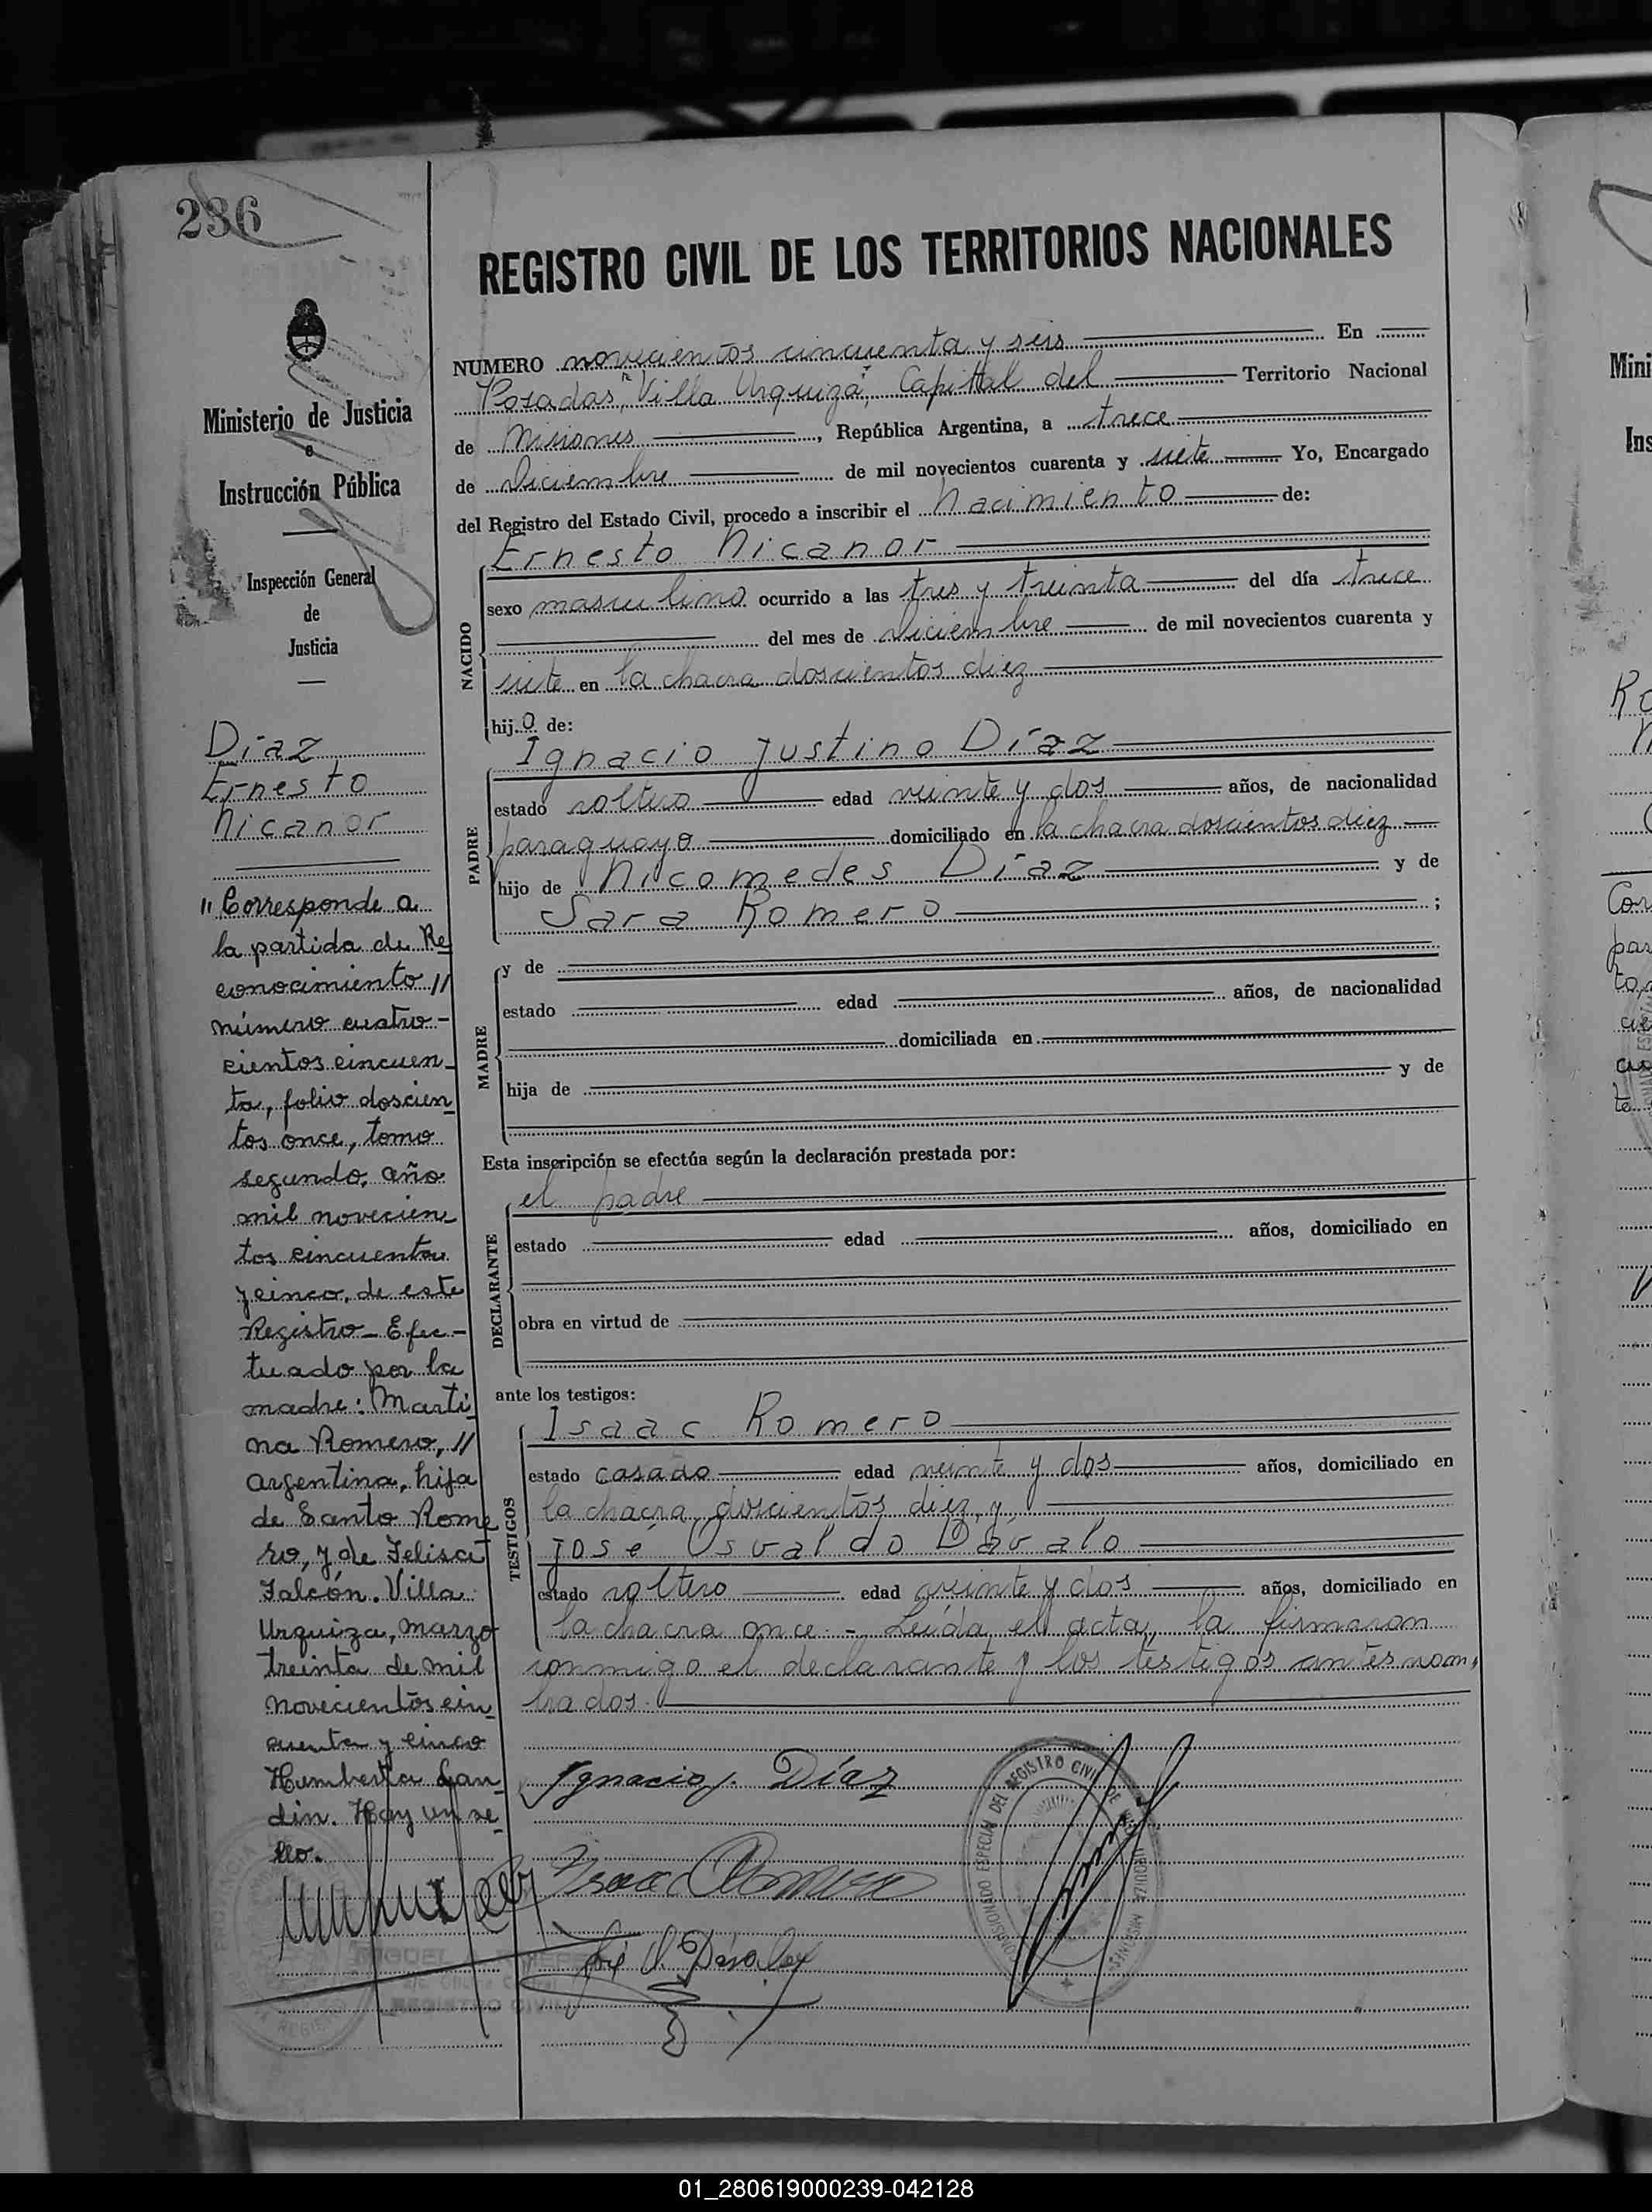 236
Ministerio de Justicia
e
Instrucción Pública
Inspección General
de
Justicia
Díaz
Ernesto
Nicanor
"Corresponde a
la partida de Re
conocimiento //
número cuatro-
cientos cincuen_
ta, folio doscien_
tos once, tomo
segundo, año
mil novecien_
tos cincuenta
y cinco, de este
Registro_ Efec-
tuado por la
madre: Marti_
na Romero, //
argentina, hija
de Santo Rome
ro, y de Felisa
Falcón. Villa
Urquiza, marzo
treinta de mil
novecientos cin_
cuenta y cinco
Humberto Lan_
din. Hay un se_
llo.
REGISTRO CIVIL DE LOS TERRITORIOS NACIONALES
NUMERO novecientos cincuenta y seis En
Posadas, "Villa Urquiza", Capittal del Territorio Nacional
de Misiones, República Argentina, a trece
de Diciembre de mil novecientos cuarenta y siete Yo, Encargado
del Registro del Estado Civil, procedo a inscribir el nacimiento de:
NACIDO
Ernesto Nicanor
sexo masculino ocurrido a las tres y treinta del día trece
del mes de diciembre de mil novecientos cuarenta y
siete en la chacra doscientos diez
hijo de:
PADRE
Ignacio Justino Díaz
estado soltero edad veinte y dos años, de nacionalidad
paraguayo domiciliado en la chacra doscientos diez
hijo de Nicomedes Díaz y de
Sara Romero ;
MADRE
y de
estado edad años, de nacionalidad
domiciliada en
hija de y de
Esta inscripción se efectúa según la declaración prestada por:
DECLARANTE
el padre
estado edad años, domiciliado en
obra en virtud de
ante los testigos:
TESTIGOS
Isaac Romero
estado casado edad veinte y dos años, domiciliado en
la chacra doscientos diez, y
José Osvaldo Dávalo
estado soltero edad veinte y dos años, domiciliado en
la chacra once.- Leída el acta, la firmaron
conmigo el declarante y los testigos antes nom,
brados.
Ignacio J. Díaz
Isaac Romero
José O. Dávalo
COMISIONADO ESPECIAL DEL REGISTRO CIVIL DE VILLA URQUIZA MISIONES
REGISTRO CIVIL
01_280619000239-042128